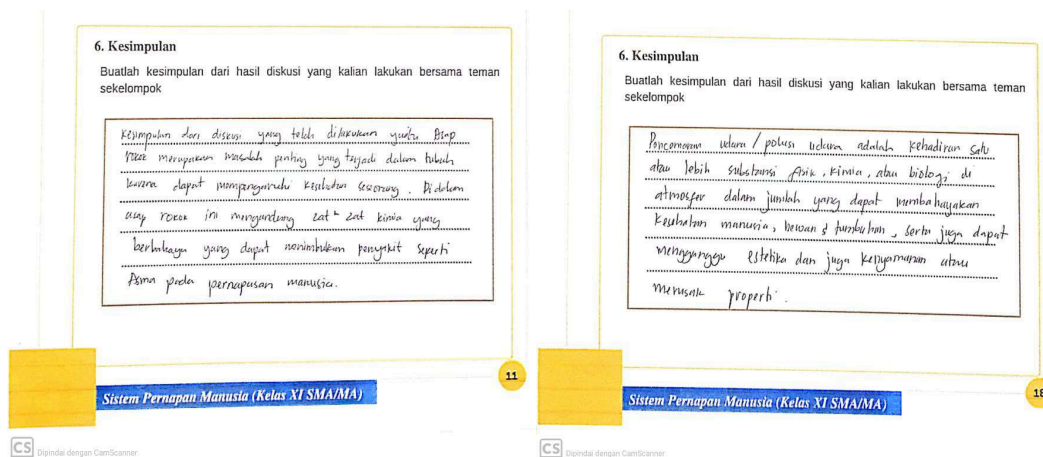 6. Kesimpulan
Buatlah kesimpulan dari hasil diskusi yang kalian lakukan bersama teman
sekelompok
Kesimpulan dari diskusi yang telah dilakukan yaitu Asap
rokok merupakan masalah penting yang terjadi dalam tubuh
karena dapat mempengaruhi kesehatan seseorang. Didalam
asap rokok ini mengandung zat² zat kimia yang
berbahaya yang dapat menimbulkan penyakit seperti
Asma pada pernapasan manusia.
11
Sistem Pernapan Manusia (Kelas XI SMA/MA)
CS Dipindai dengan CamScanner
6. Kesimpulan
Buatlah kesimpulan dari hasil diskusi yang kalian lakukan bersama teman
sekelompok
Pencemaran udara / polusi udara adalah kehadiran satu
atau lebih substansi fisik, kimia, atau biologi di
atmosfer dalam jumlah yang dapat membahayakan
kesehatan manusia, hewan & tumbuhan, serta juga dapat
mengganggu estetika dan juga kenyamanan atau
merusak properti.
18
Sistem Pernapan Manusia (Kelas XI SMA/MA)
CS Dipindai dengan CamScanner